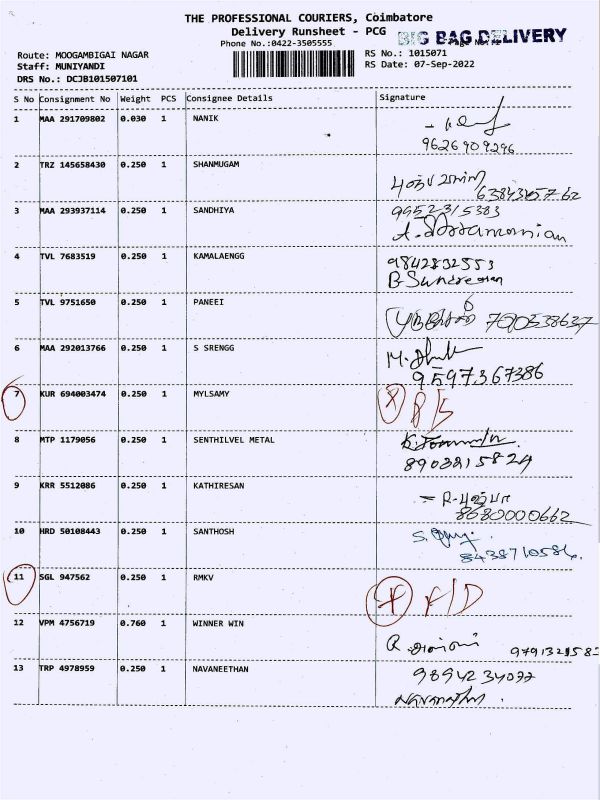 THE PROFESSIONAL COURIERS, Coimbatore
Delivery Runsheet - PCG
BIG BAG DELIVERY
Phone No.:0422-3505555
Route: MOOGAMBIGAI NAGAR
RS No.: 1015071
Staff: MUNIYANDI
RS Date: 07-Sep-2022
DRS No.: DCJB101507101
S No Consignment No Weight PCS Consignee Details Signature
1 MAA 291709802 0.030 1 NANIK
9626909296
2 TRZ 145658430 0.250 1 SHANMUGAM
3 MAA 293937114 0.250 1 SANDHIYA 9952315383
4 TVL 7683519 0.250 1 KAMALAENGG 9842832553
5 TVL 9751650 0.250 1 PANEEI
6 MAA 292013766 0.250 1 S SRENGG
9597367386
7 KUR 694003474 0.250 1 MYLSAMY
8 MTP 1179056 0.250 1 SENTHILVEL METAL
8903215824
9 KRR 5512086 0.250 1 KATHIRESAN
8680000662
10 HRD 50108443 0.250 1 SANTHOSH
8438710586
11 SGL 947562 0.250 1 RMKV
12 VPM 4756719 0.760 1 WINNER WIN
13 TRP 4978959 0.250 1 NAVANEETHAN 9894234077